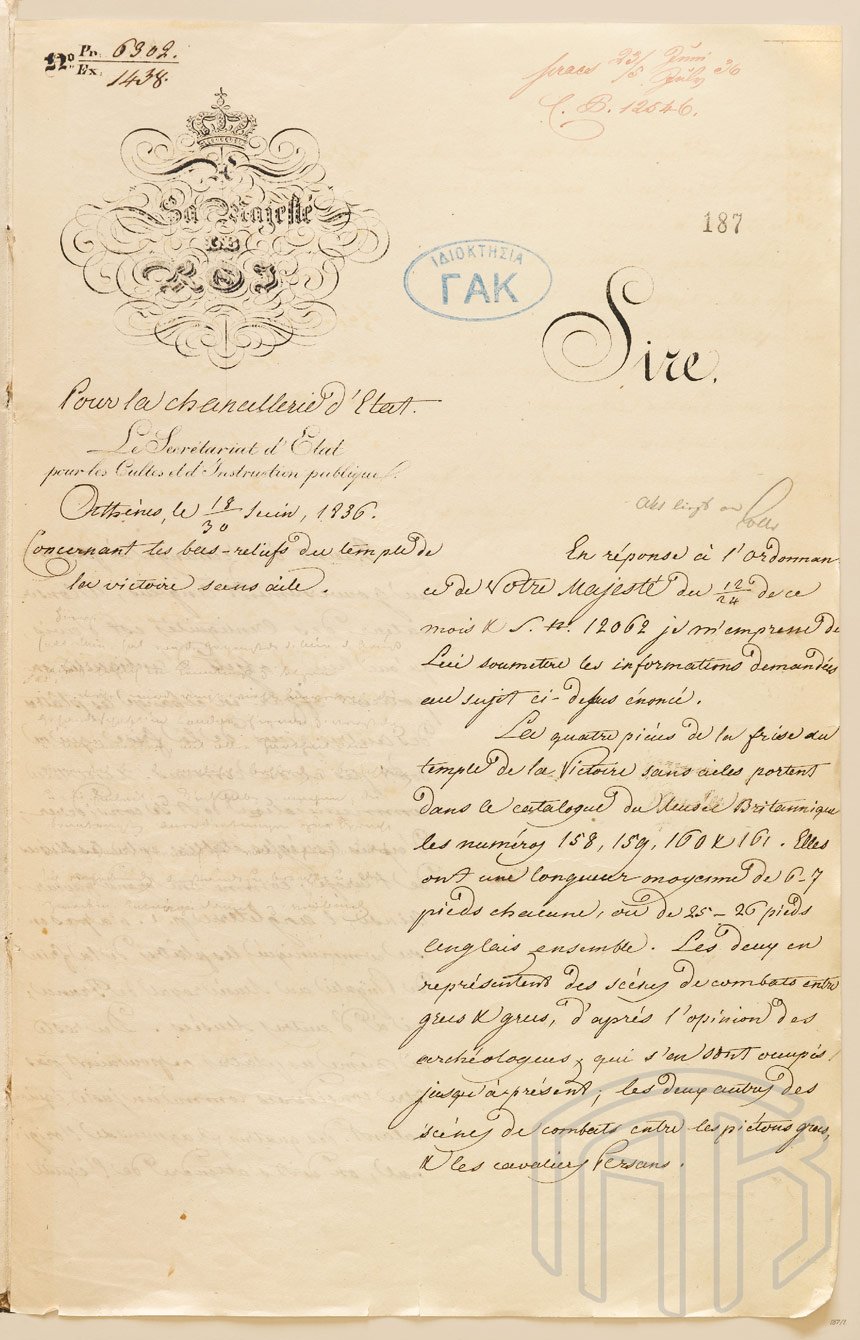 No Pr. 6302.
Ex. 1438.
praes 23/5 Juni July 36
C. B. 12546.
Sa Majesté
LE
ROI
187
ΙΔΙΟΚΤΗΣΙΑ
ΓΑΚ
Sire,
Pour la chancellerie d'Etat.
Le Secrétariat d'Etat
pour les Cultes et d'Instruction publique
Athènes, le 18/30 Juin, 1836.
Concernant les bas-reliefs du temple de
la victoire sans aile.
En réponse à l'ordonnan
ce de Votre Majesté du 12/24 de ce
mois & S. N. 12062 je m'empresse de
Lui soumettre les informations demandées
au sujet ci-dessus énoncé.
Les quatre pièces de la frise du
temple de la Victoire sans ailes portent
dans le catalogue du Musée Britannique
les numéros 158, 159, 160 & 161. Elles
ont une longueur moyenne de 6-7
pieds chacune, ou de 25-26 pieds
anglais ensemble. Les deux en
représentent des scènes de combats entre
grecs & grecs, d'après l'opinion des
archéologues, qui s'en sont occupés
jusqu'à présent; les deux autres des
scènes de combats entre les piétons grecs,
& les cavaliers Persans.
ΓΑΚ
187/1